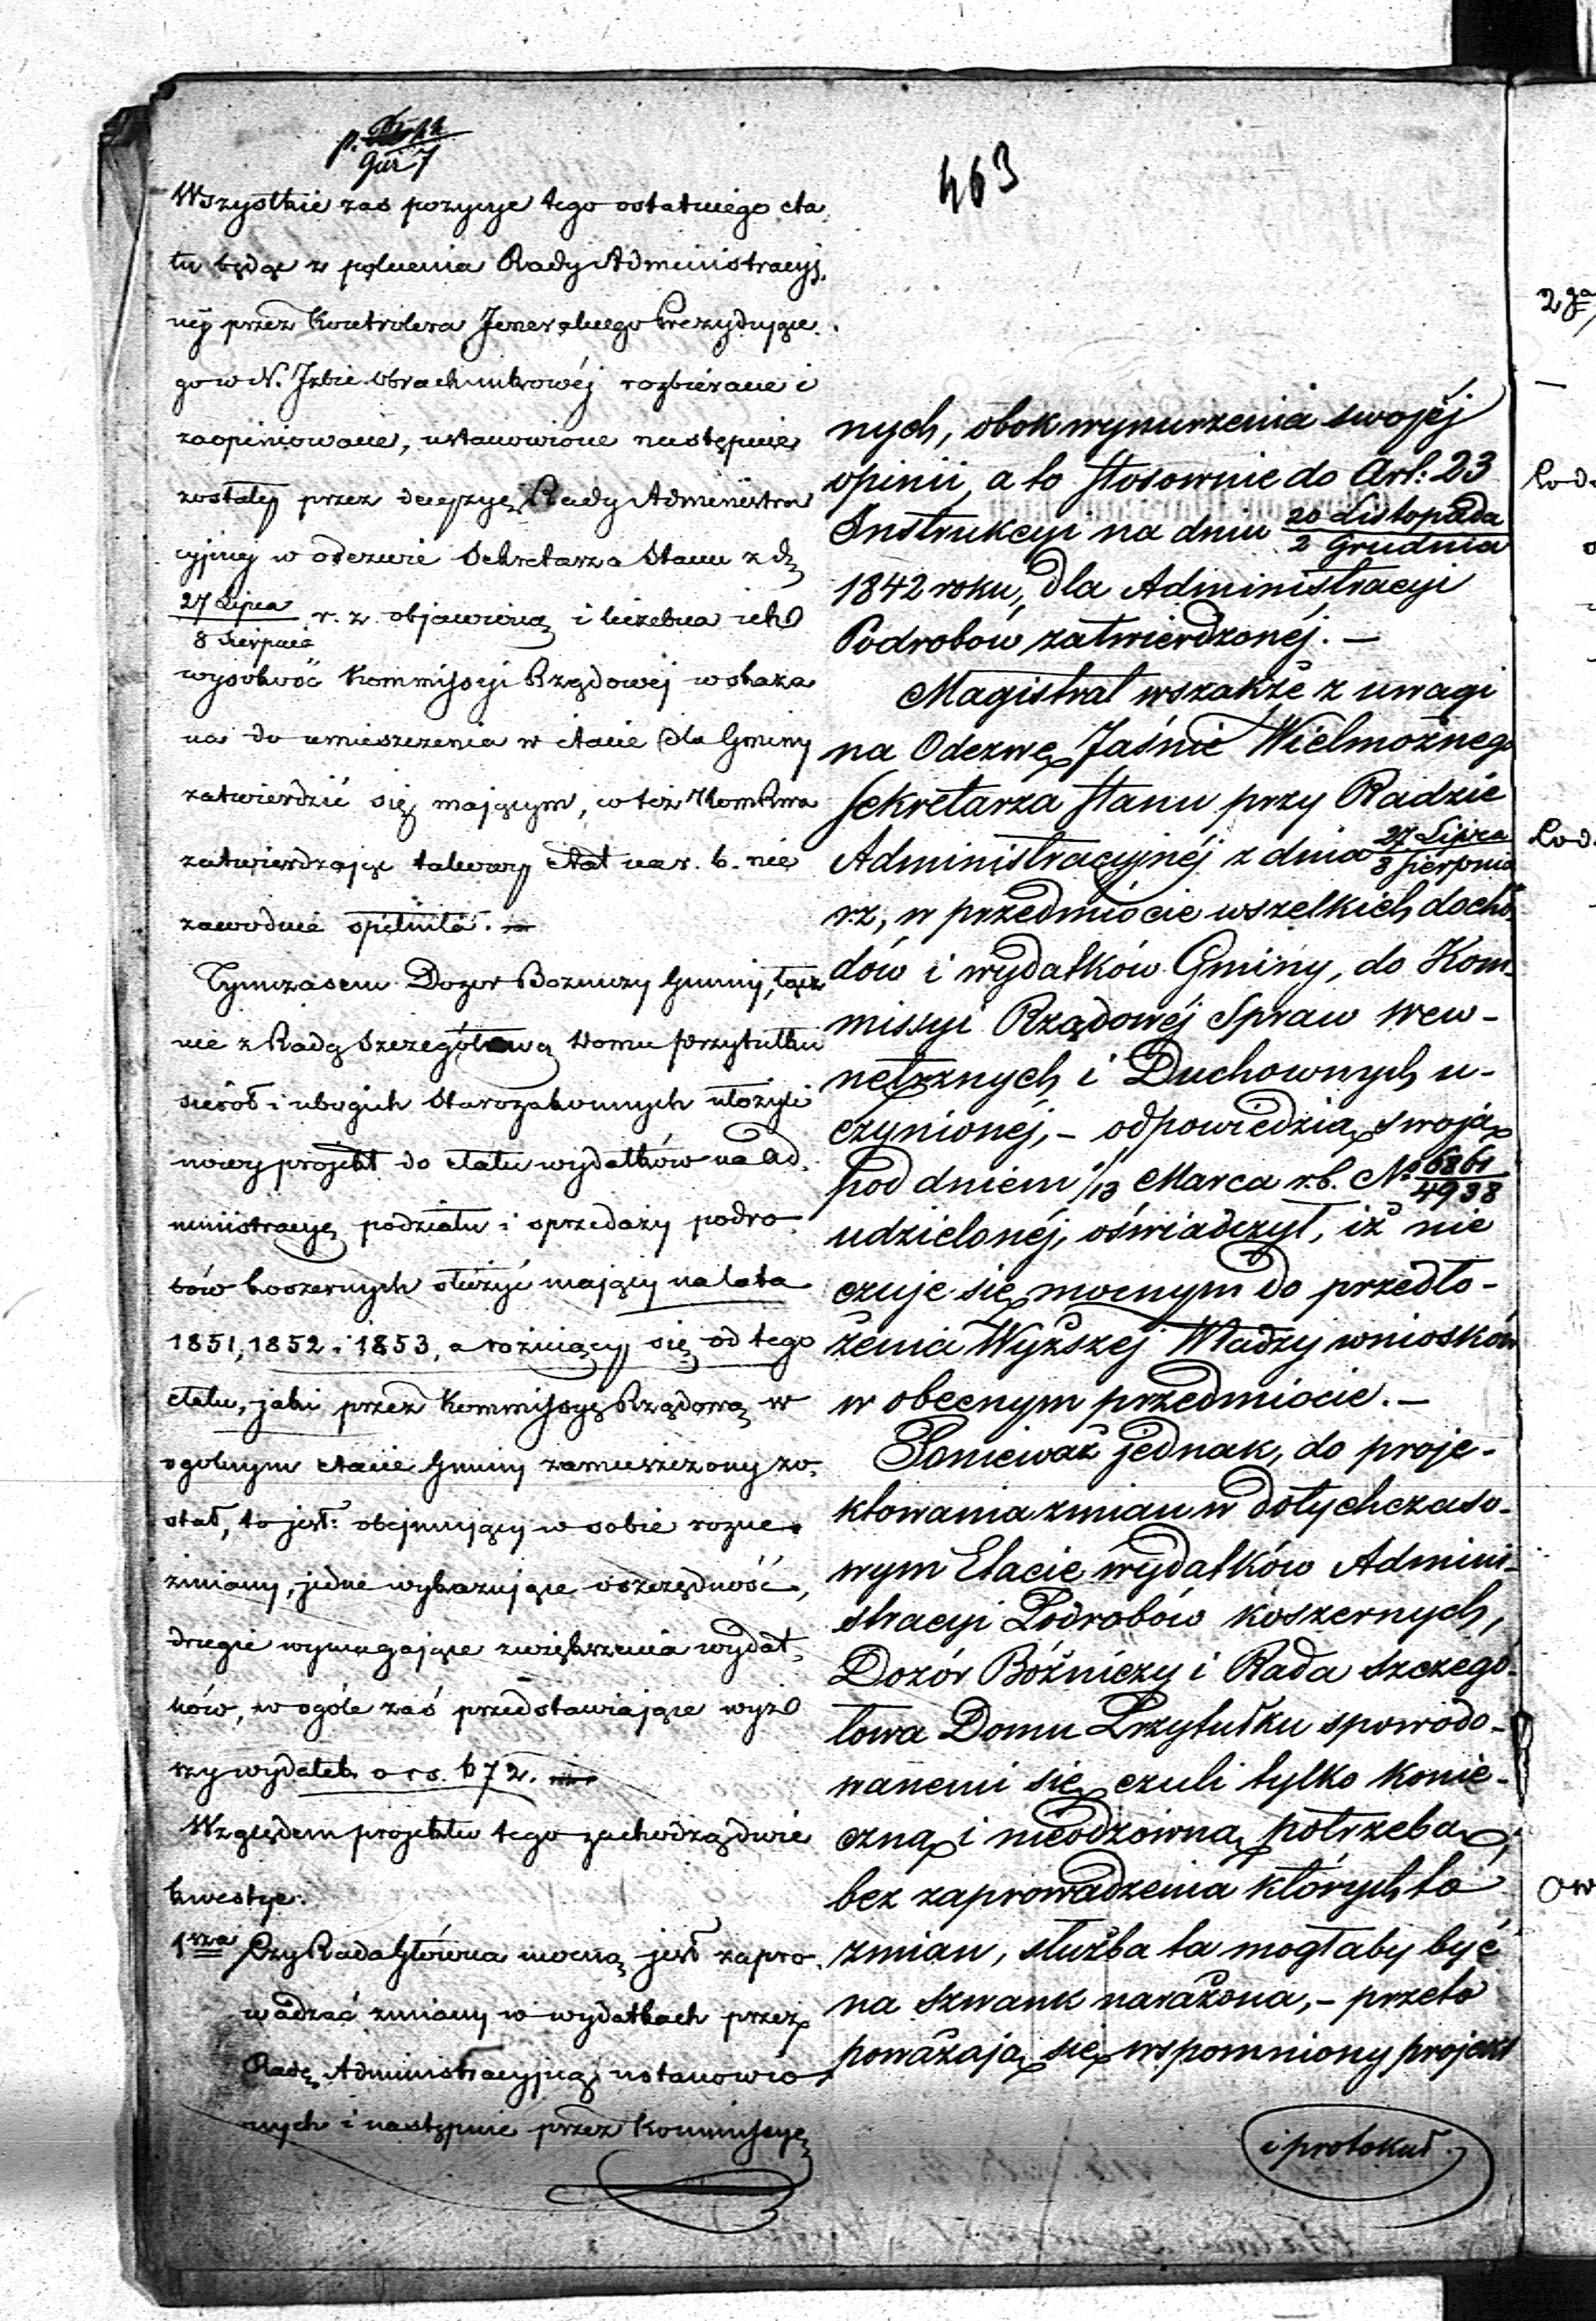 463
Wszystkie zaś pozycye tego ostatniego eta
tu będąc z polecenia Rady Administracyj,
néj przez Kontrolera Jeneralnego Prezydujące,
go w N. Izbie Obrachunkowéj rozbierane i
zaopiniowane, ustanowione następnie
zostały przez decyzyę Rady Administra
cyjnej w odezwie Sekretarza Stanu z d.
27 Lipca / 8 Sierpnia r. z. objawioną i liczebna ich
wysokość Kommissyi Rządowéj wskaza
na do umieszczenia w etacie dla Gminy
zatwierdzić się mającym, co też Kom Rwa
zatwierdzając takowy etat na r. b. nie
zawodnie spełniła. —
Tymczasem Dozor Bozniczy Gminy, łącz
nie z Radą Szczegółową Domu Przytułku
sierot i ubogich Starozakonnych ułożyli
nowy projekt do etatu wydatków na Ad,
ministracyę podziału i sprzedaży podro
bów koszernych służyć mający na lata
1851, 1852 i 1853, a rożniący się od tego
etatu, jaki przez Kommissyę Rządową w
ogolnym etacie Gminy zamieszczony zo,
stał, to jest: obejmujący w sobie rozne
zmiany, jedne wykazujące oszczędność,
drugie wymagające zwiększenia wydat,
ków, w ogóle zaś przedstawiające wyż
szy wydatek o rs. 672. —
Względem projektu tego zachodzą dwie
kwestye:
1sza Czy Rada Główna mocną jest zapro,
wadzać zmiany w wydatkach przez
Radę Administracyjną ustanowio
nych i następnie przez Kommissyę
nych, obok wynurzenia swojéj
opinii, a to stosownie do Art: 23
Instrukcyi na dniu 20 Listopada / 2 Grudnia
1842 roku, dla Administracyi
Podrobów zatwierdzonéj. —
Magistrat wszakże z uwagi
na Odezwę Jaśnie Wielmożnego
Sekretarza Stanu przy Radzie
Administracyjnéj z dnia 27 Lipca / 8 Sierpnia
r.z, w przedmiocie wszelkich docho
dów i wydatków Gminy, do Kom-
missyi Rządowéj Spraw Wew-
nętrznych i Duchownych u-
czynionéj, – odpowiedzią swoją
pod dniem 1/13 Marca r.b. No 6861 / 4938
udzielonéj, oświadczył, iż nie
czuje się mocnym do przedło-
żenia Wyższéj Władzy wniosków
w obecnym przedmiocie. —
Ponieważ jednak, do proje-
ktowania zmian w dotychczaso-
wym Etacie wydatków Admini-
stracyi Podrobów koszernych,
Dozór Bóżniczy i Rada Szczegó-
łowa Domu Przytułku spowodo-
wanemi się czuli tylko konie-
czną i nieodzowną potrzebą,
bez zaprowadzenia których to
zmian, służba ta mogłaby być
na szwank narażona, – przeto
poważają się wspomniony projekt
i protokuł.